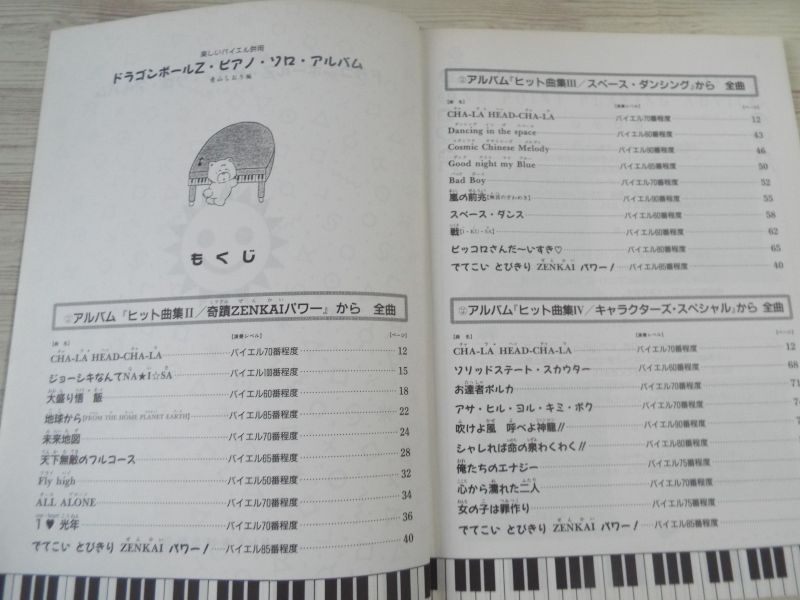 楽しいバイエル併用
ドラゴンボールZ・ピアノ・ソロ・アルバム
青山しおり編
もくじ
②アルバム『ヒット曲集II／奇蹟ZENKAIパワー』から 全曲
[曲名] [演奏レベル] [ページ]
CHA-LA HEAD-CHA-LA バイエル70番程度 12
ジョーシキなんてNA★I☆SA バイエル100番程度 15
大盛り悟飯 バイエル60番程度 18
地球から[FROM THE HOME PLANET EARTH] バイエル85番程度 22
未来地図 バイエル70番程度 24
天下無敵のフルコース バイエル65番程度 28
Fly high バイエル50番程度 32
ALL ALONE バイエル70番程度 34
1♥光年 バイエル70番程度 36
でてこい とびきり ZENKAI パワー！ バイエル85番程度 40
②アルバム『ヒット曲集III／スペース・ダンシング』から 全曲
[曲名] [演奏レベル] [ページ]
CHA-LA HEAD-CHA-LA バイエル70番程度 12
Dancing in the space バイエル80番程度 43
Cosmic Chinese Melody バイエル80番程度 46
Good night my Blue バイエル85番程度 50
Bad Boy バイエル70番程度 52
嵐の前兆 バイエル90番程度 55
スペース・ダンス バイエル60番程度 58
戦[I・KU・SA] バイエル60番程度 62
ピッコロさんだ〜いすき♡ バイエル80番程度 65
でてこい とびきり ZENKAI パワー！ バイエル85番程度 40
②アルバム『ヒット曲集IV／キャラクターズ・スペシャル』から 全曲
[曲名] [演奏レベル]
CHA-LA HEAD-CHA-LA バイエル70番程度 12
ソリッドステート・スカウター バイエル60番程度 68
お達者ポルカ バイエル70番程度 71
アサ・ヒル・ヨル・キミ・ボク バイエル70番程度
吹けよ風 呼べよ神龍!! バイエル80番程度
シャレれば命の泉わくわく!! バイエル80番程度
俺たちのエナジー バイエル75番程度
心から濡れた二人 バイエル70番程度
女の子は罪作り バイエル75番程度
でてこい とびきり ZENKAI パワー！ バイエル85番程度